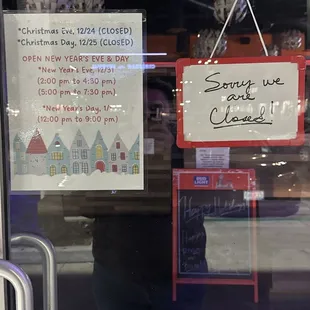 *Christmas Eve, 12/24 (CLOSED)
*Christmas Day, 12/25 (CLOSED)
OPEN NEW YEAR'S EVE & DAY
*New Year's Eve, 12/31
(2:00 pm to 4:30 pm)
(5:00 pm to 7:30 pm)
*New Year's Day, 1/1
(12:00 pm to 9:00 pm)
Sorry we
are
Closed!
Happy Holidays